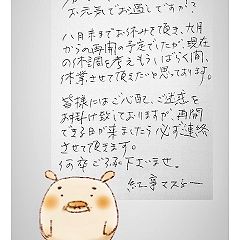 お元気でお過しですか！？
八月末までお休みさせて頂き、九月
からの再開の予定でしたが、現在
の体調を考えもうしばらく間、
休業させて頂きたいと思っております。
皆様にはご心配、ご迷惑を
お掛け致しておりますが、再開
できる日が来ましたら必ず連絡
させて頂きます。
何卒ご了承下さいませ。
マスター